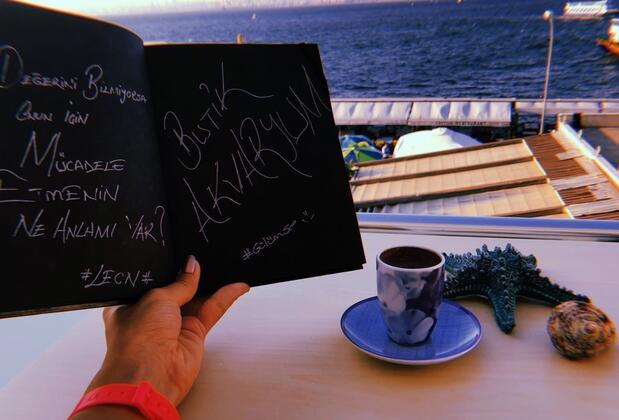 Değerini Bilmiyorsa
Onun için
Mücadele
Etmenin
Ne Anlamı Var?
#LECN#
Bistik
AKVARYUM